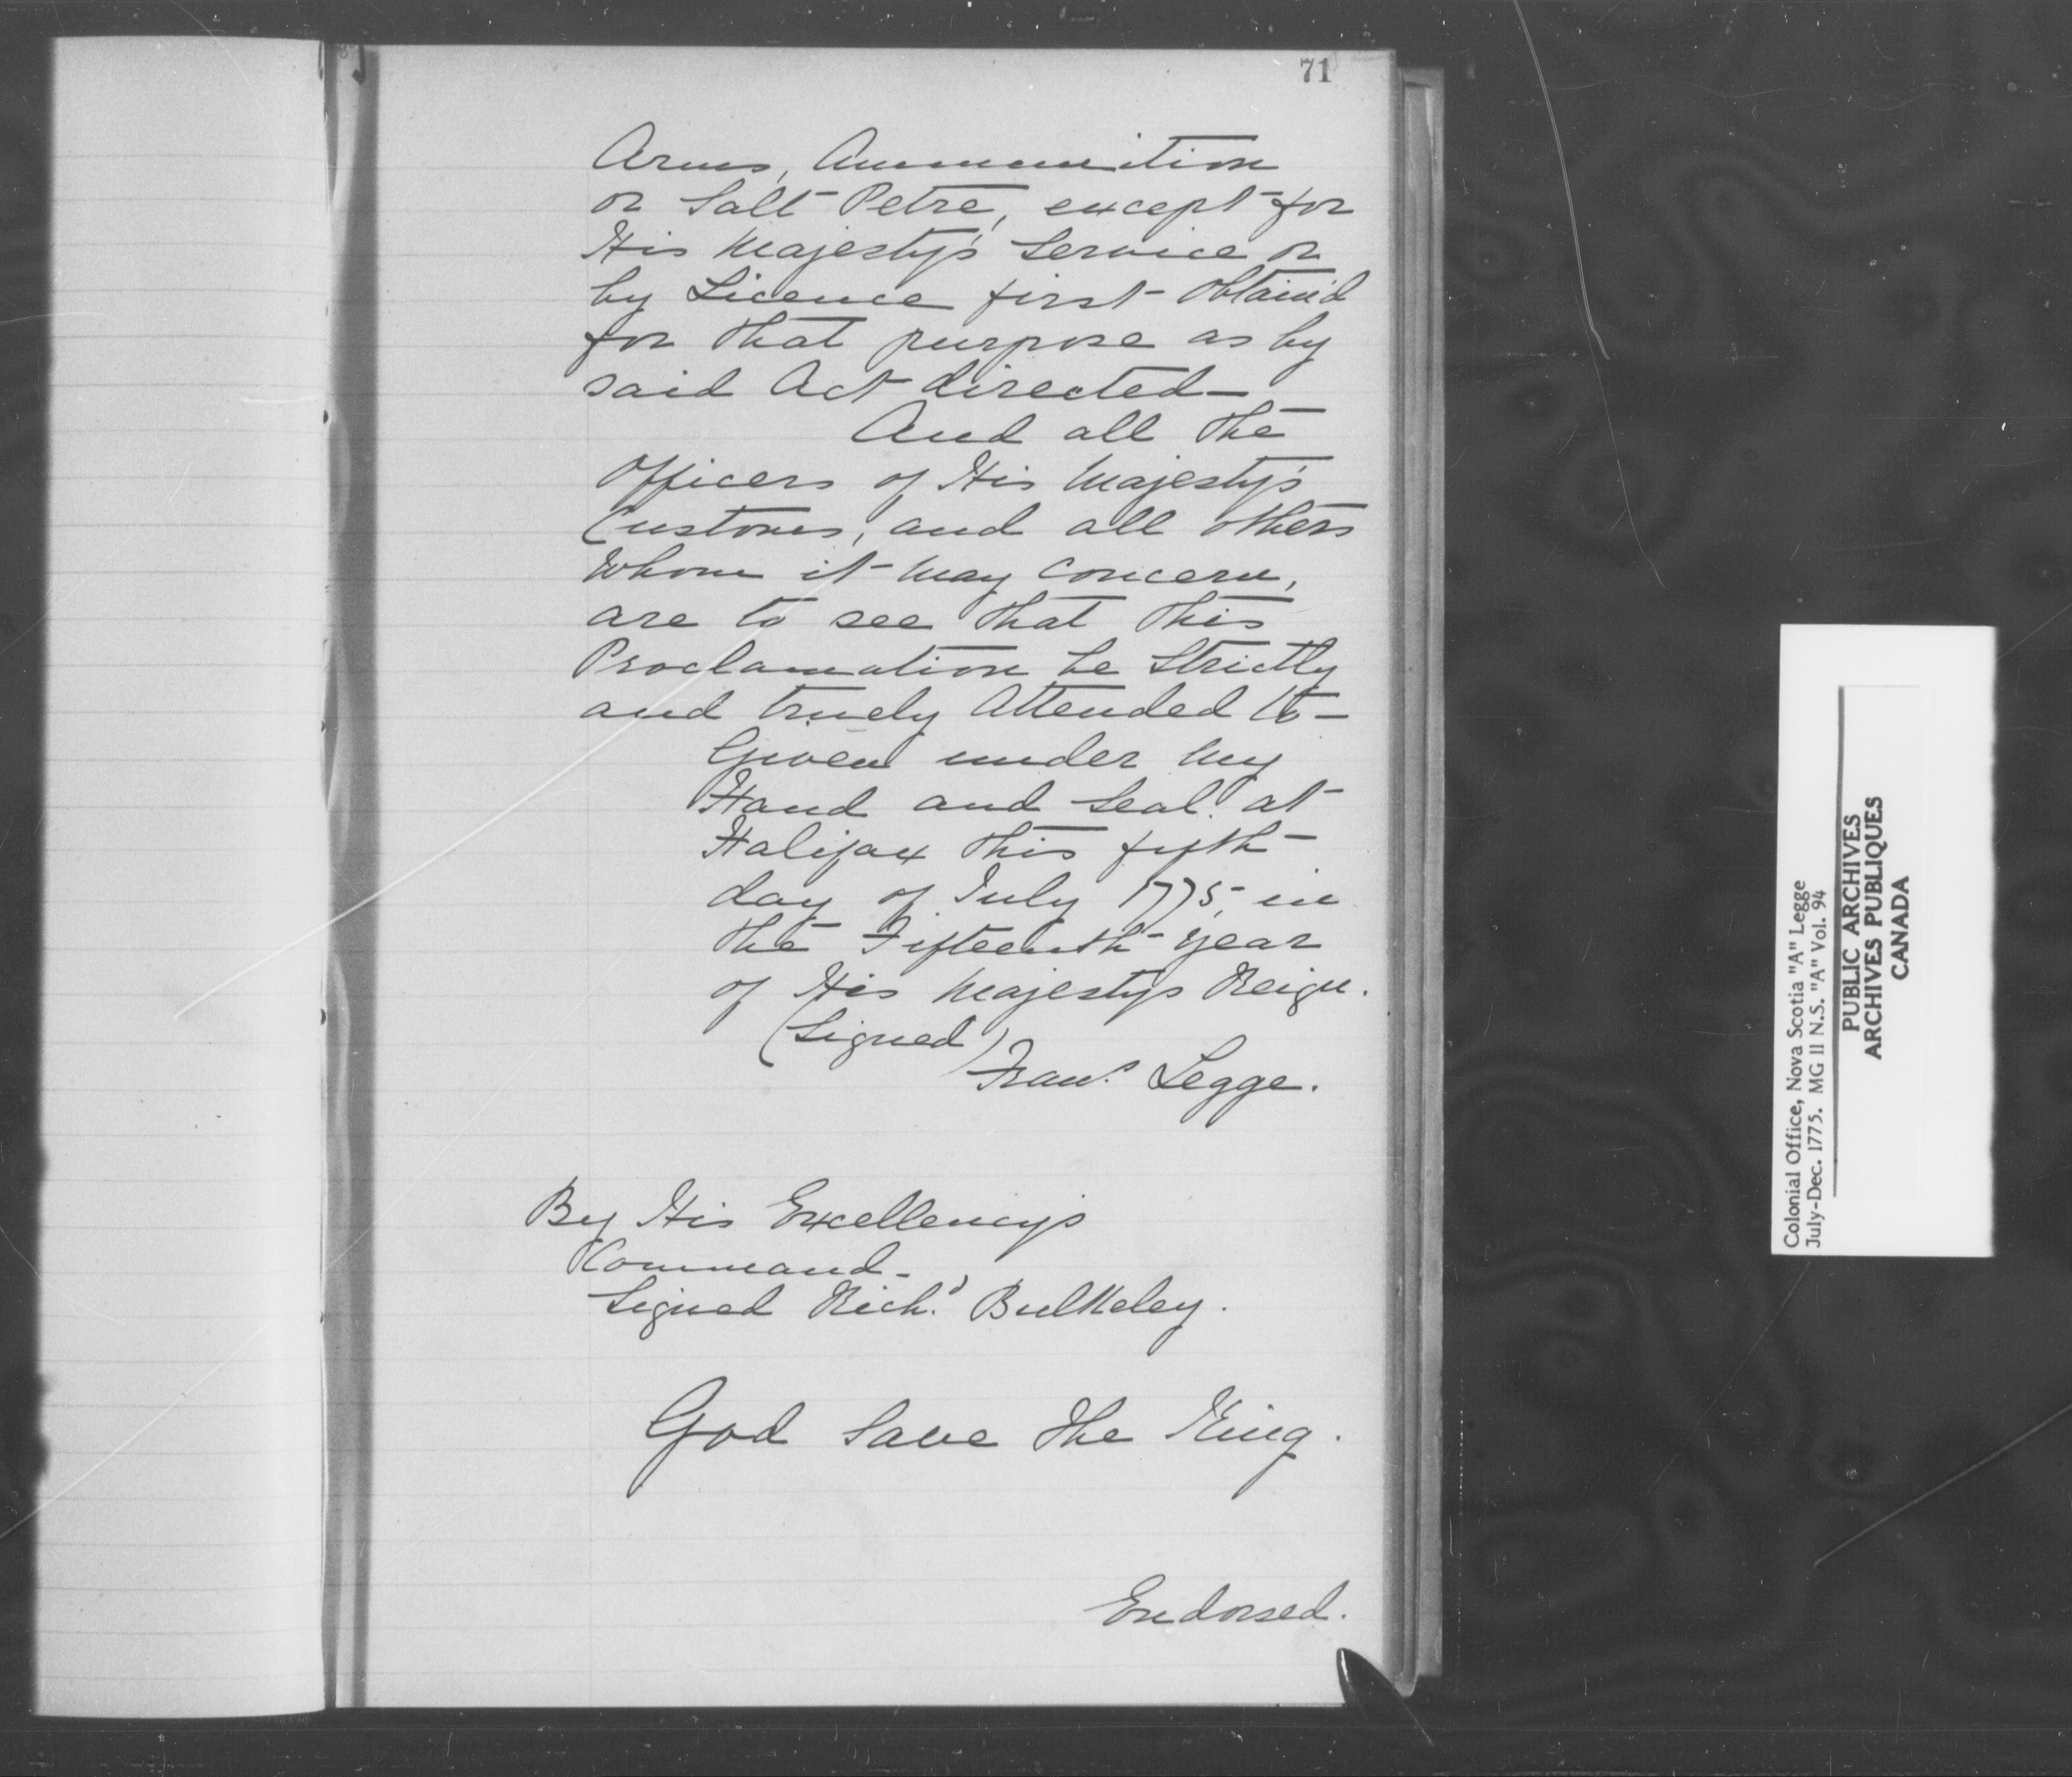 71
Arms, Ammunition
or Salt Petre, except for
His Majesty's Service or
by Licence first obtain'd
for that purpose as by
said Act directed—
And all the
Officers of His Majesty's
Customs, and all others
Whom it may concern,
are to see that this
Proclamation be Strictly
and truely Attended to—
Given under my
Hand and Seal at
Halifax this fifth
day of July 1775, in
the Fifteenth Year
of His Majestys Reign.
(Signed)
Frans. Legge.
By His Excellencys
Command-
Signed Richd. Bulkeley.
God Save the King.
Endorsed.
Colonial Office, Nova Scotia "A" Legge
July-Dec. 1775. MG 11 N.S. "A" Vol. 94
PUBLIC ARCHIVES
ARCHIVES PUBLIQUES
CANADA